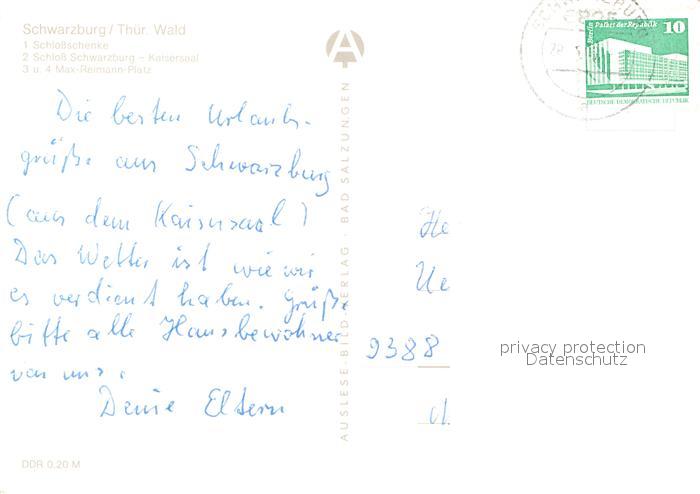 Schwarzburg/Thür. Wald
1 Schloßschenke
2 Schloß Schwarzburg – Kaisersaal
3 u. 4 Max-Reimann-Platz
Berlin Palast der Republik 10
DEUTSCHE DEMOKRATISCHE REPUBLIK
Die besten Urlaubs-
grüße aus Schwarzburg
(aus dem Kaisersaal)
Das Wetter ist wie wir
es verdient haben. Grüße
bitte alle Hausbewohner
von uns.
Deine Eltern
AUSLESE-BILD-VERLAG · BAD SALZUNGEN
He
Ue
9388
privacy protection
Datenschutz
DDR 0,20 M